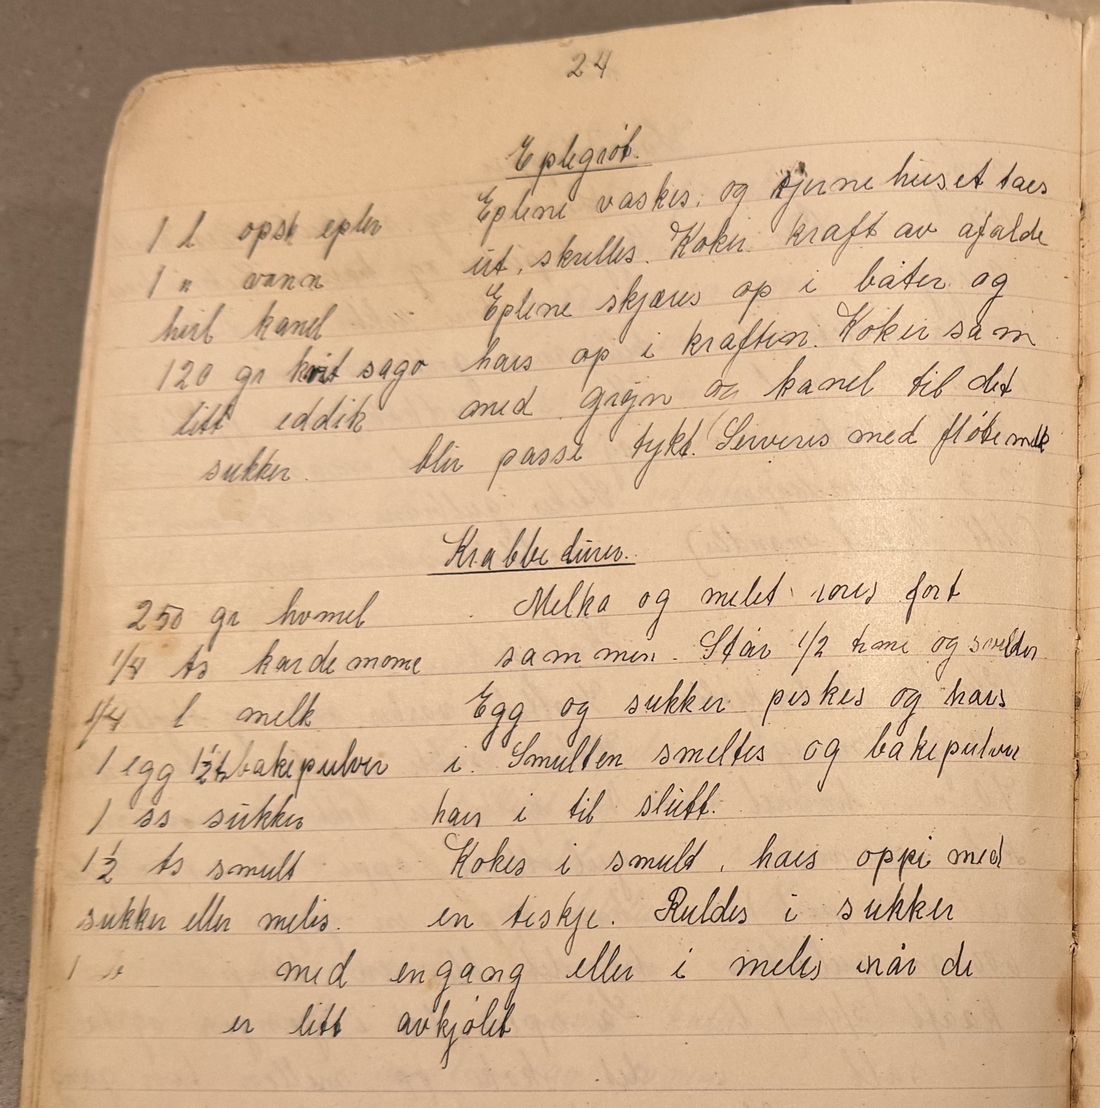 24
Eplegrøt.
1 l opsk epler Eplene vaskes, og kjernehuset taes
1 " vann ut, skrelles. Koker kraft av afalde
heil kanel Eplene skjæres op i båter og
120 gr kvit sago haes op i kraften. Koker sam
litt eddik med grøjn og kanel til det
sukker. blir passe tykt. Serveres med fløtemelk
Krabbe
250 gr hvmel Melka og melet røres fort
1/4 ts kardemome sammen. Står 1/2 time og
1/4 l melk Egg og sukker piskes og haes
1 egg 1/2 ts bakepulver i. Smulten smeltes og bakepulver
1 ss sukker haes i til slutt.
1 1/2 ts smult Kokes i smult, haes oppi med
sukker eller melis. en teskje. Ruldes i sukker
1 " med engang eller i melis når de
er litt avkjølet